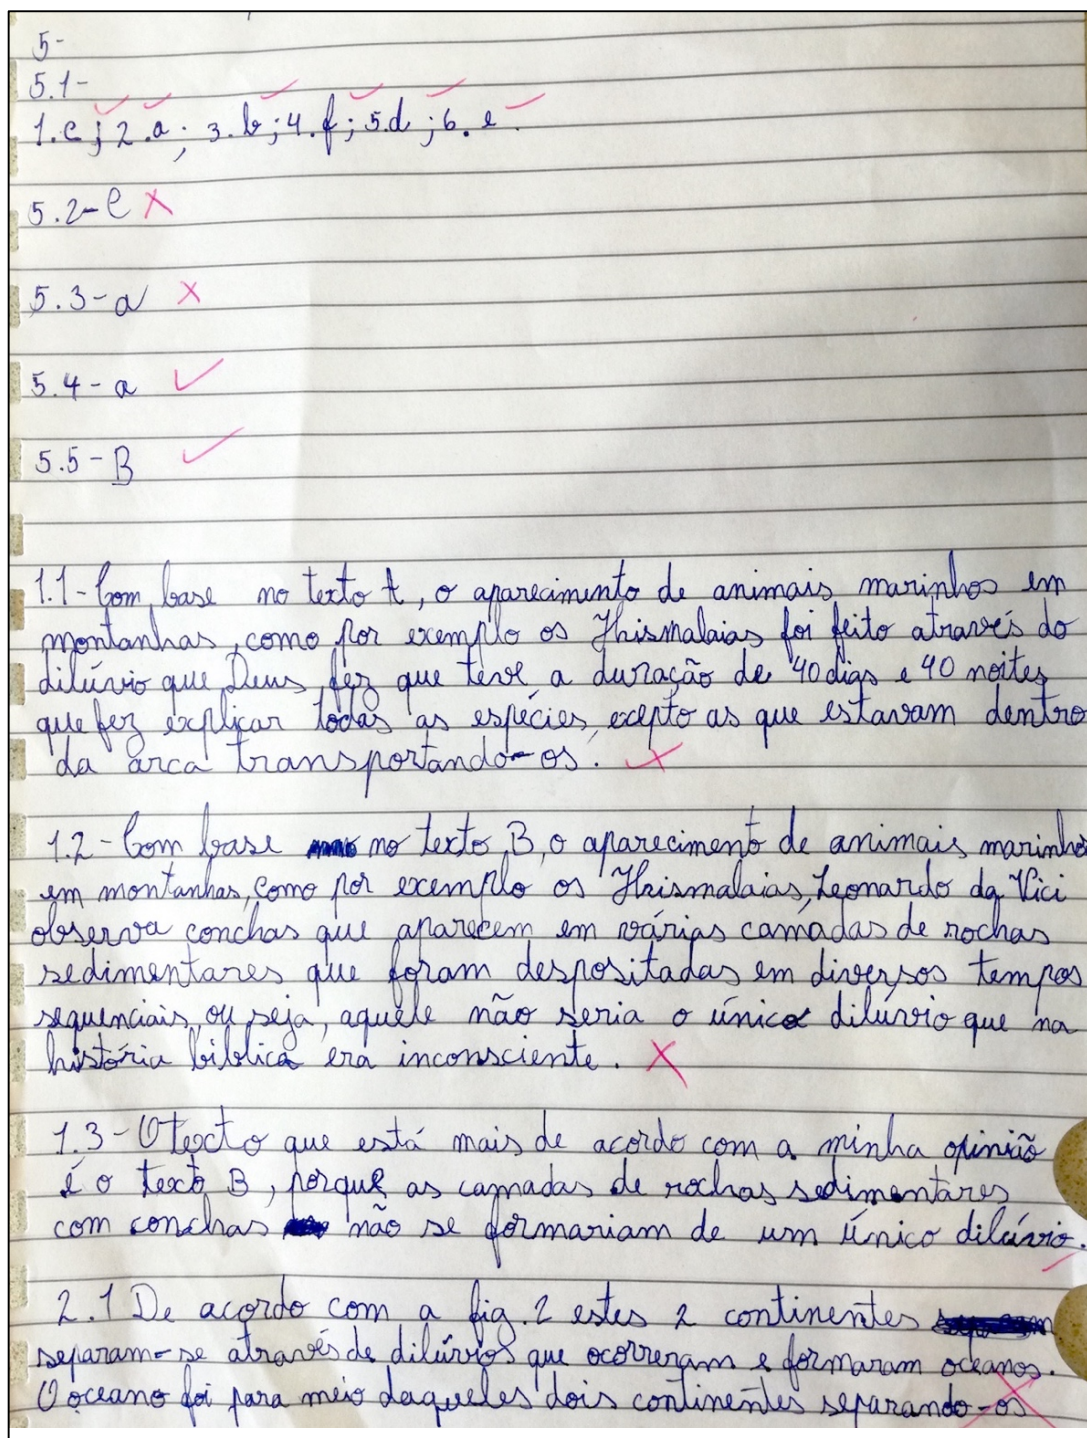 5-
5.1-
1.c; 2.a; 3.b; 4.f; 5.d; 6.e.
5.2-C
5.3-a
5.4-a
5.5-B
1.1- Com base no texto A, o aparecimento de animais marinhos em
montanhas, como por exemplo os Hismalaias foi feito através do
dilúvio que Deus fez que teve a duração de 40 dias e 40 noites
que fez explicar todas as espécies, excepto as que estavam dentro
da arca transportando-os.
1.2- Com base no texto B, o aparecimento de animais marinhos
em montanhas, como por exemplo os Hismalaias, Leonardo da Vici
observa conchas que aparecem em várias camadas de rochas
sedimentares que foram despositadas em diversos tempos
sequenciais, ou seja, aquele não seria o único dilúvio que na
história biblica era inconsciente.
1.3- O texto que está mais de acordo com a minha opinião
é o texto B, porque as camadas de rochas sedimentares
com conchas não se formariam de um único dilúvio.
2.1 De acordo com a fig. 2 estes 2 continentes
separam-se através de dilúvios que ocorreram e formaram oceanos.
O oceano foi para meio daqueles dois continentes separando-os